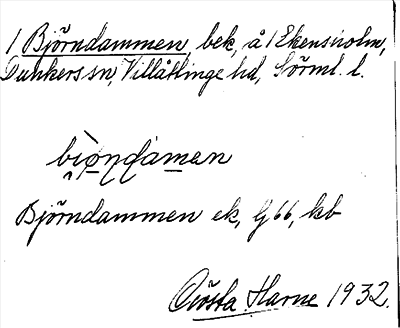 1 Björndammen, bek, å 1 Ekensholm,
Dunkers sn, Villåttinge hd, Sörml. l.
bìo̤ṇdàmen
Björndammen ek, G66, kb
Gösta Harne 1932.